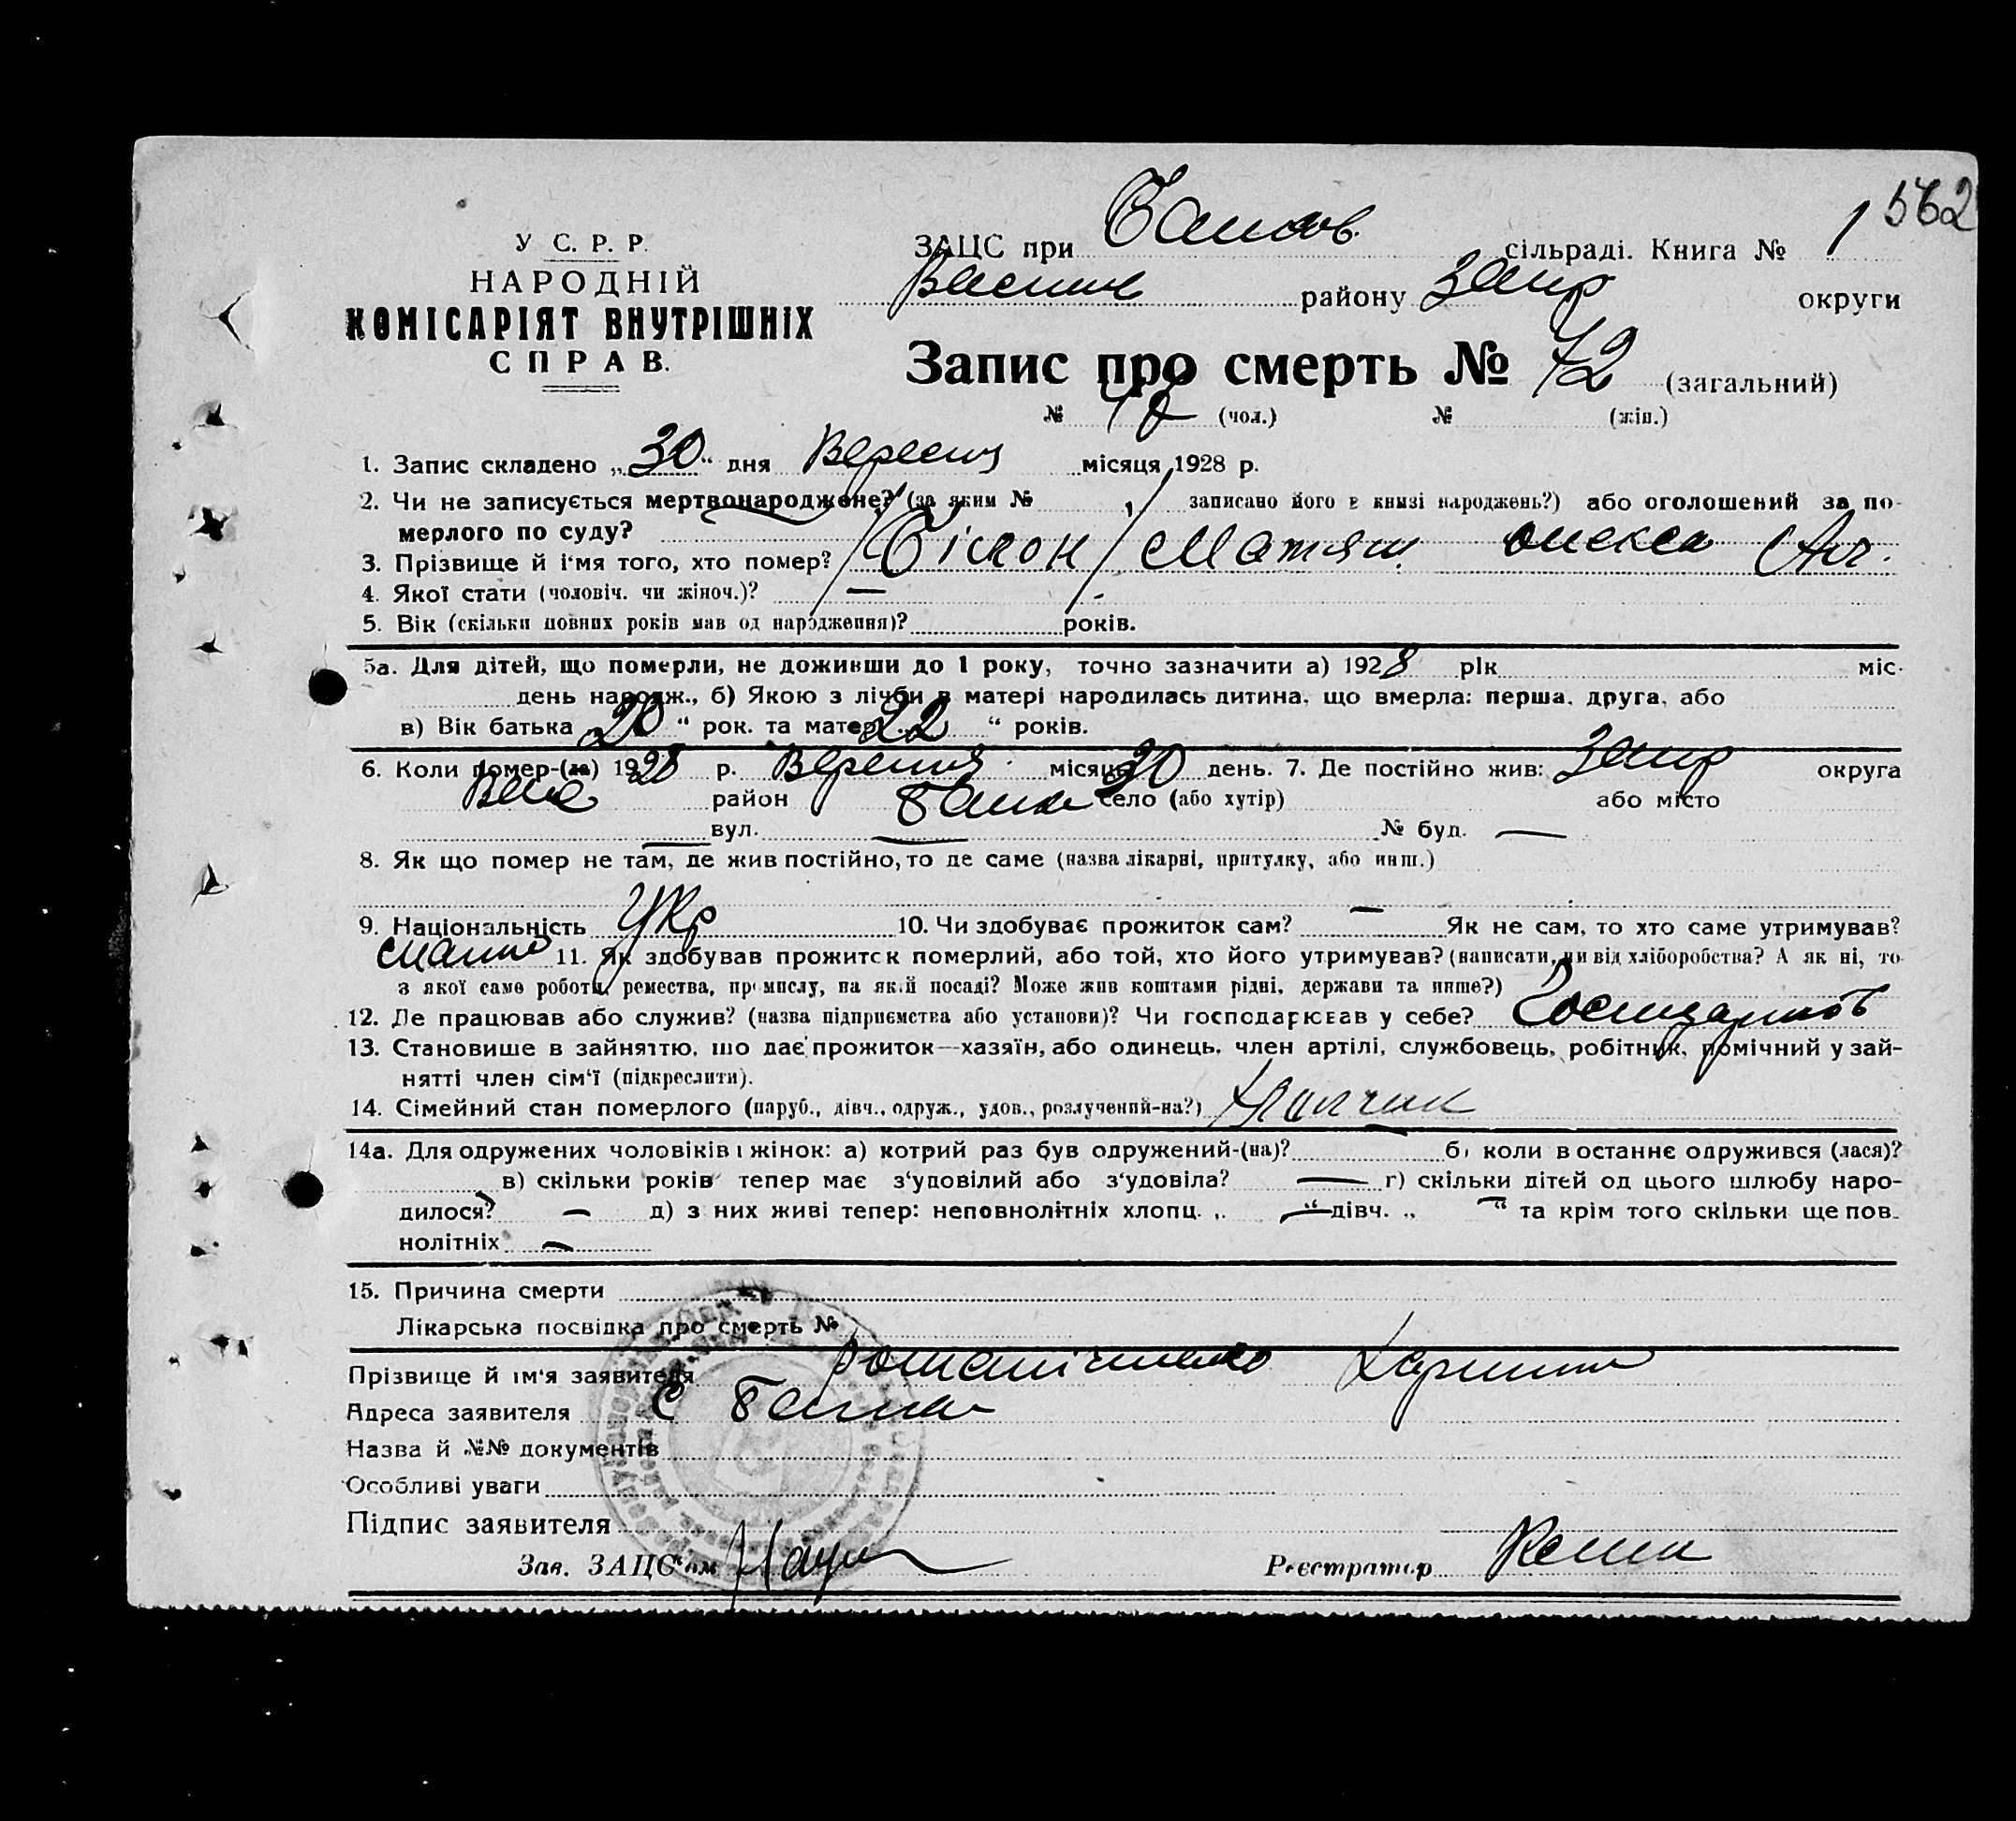 562
У С. Р. Р.
НАРОДНІЙ
КОМІСАРІЯТ ВНУТРІШНІХ
СПРАВ.
ЗАЦС при сільраді. Книга № 1
району Запор округи
Запис про смерть № 42 (загальний)
№ (чол.) № (жін.)
1. Запис складено „30“ дня Вересня місяця 1928 р.
2. Чи не записується мертвонароджене? (за яким № записано його в книзі народжень?) або оголошений за по-
мерлого по суду?
3. Прізвище й ім'я того, хто помер? Матяш Олекса
4. Якої стати (чоловіч. чи жіноч.)? —
5. Вік (скільки повних років мав од народження)? років.
5а. Для дітей, що померли, не доживши до 1 року, точно зазначити а) 1928 рік міс.
день народж., б) Якою з лічби в матері народилась дитина, що вмерла: перша, друга, або
в) Вік батька „20“ рок. та матері „22“ років.
6. Коли помер-(ла) 1928 р. Вересня місяця 30 день. 7. Де постійно жив: Запор округа
район село (або хутір) або місто
вул. — № буд. —
8. Як що помер не там, де жив постійно, то де саме (назва лікарні, притулку, або инш.)
9. Національність Укр 10. Чи здобуває прожиток сам? — Як не сам, то хто саме утримував?
11. Як здобував прожиток померлий, або той, хто його утримував? (написати, чи від хліборобства? А як ні, то
з якої саме роботи, ремества, промислу, на якій посаді? Може жив коштами рідні, держави та инше?)
12. Де працював або служив? (назва підприємства або установи)? Чи господарював у себе?
13. Становище в зайняттю, що дає прожиток—хазяїн, або одинець, член артілі, службовець, робітник, помічний у зай-
нятті член сім'ї (підкреслити).
14. Сімейний стан померлого (паруб., дівч., одруж., удов., розлучений-на?) Хлопчик
14а. Для одружених чоловіків і жінок: а) котрий раз був одружений-(на)? б) коли в останнє одружився (лася)?
в) скільки років тепер має з'уповілий або з'удовіла? — г) скільки дітей од цього шлюбу наро-
дилося? — д) з них живі тепер: неповнолітніх хлопц. „—“ дівч. „—“ та крім того скільки ще пов-
нолітніх —
15. Причина смерти
Лікарська посвідка про смерть №
Прізвище й ім'я заявителя
Адреса заявителя с
Назва й №№ документів
Особливі уваги
Підпис заявителя
Зав. ЗАЦС'ом Реєстратор